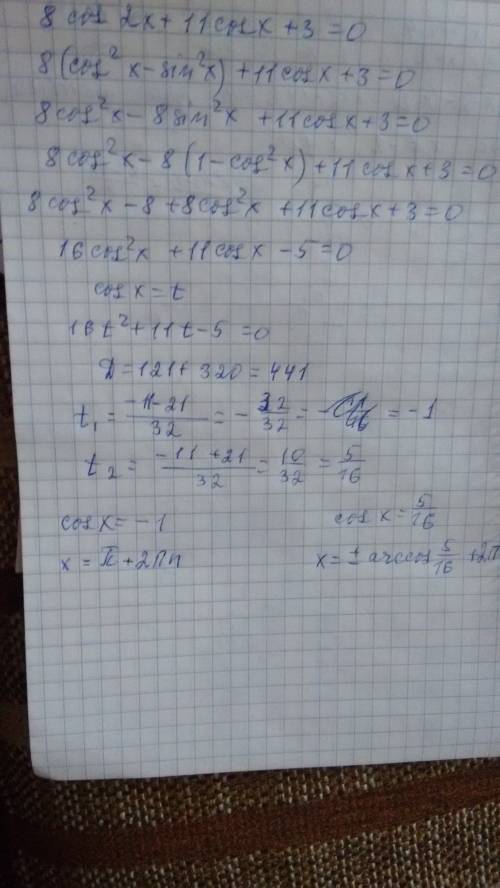 8 cos 2x + 11 cos x + 3 = 0
8 (cos² x - sin² x) + 11 cos x + 3 = 0
8 cos² x - 8 sin² x + 11 cos x + 3 = 0
8 cos² x - 8 (1 - cos² x) + 11 cos x + 3 = 0
8 cos² x - 8 + 8 cos² x + 11 cos x + 3 = 0
16 cos² x + 11 cos x - 5 = 0
cos x = t
16 t² + 11 t - 5 = 0
Д = 121 + 320 = 441
t₁ = (-11-21)/32 = - 32/32 = = -1
t₂ = (-11+21)/32 = 10/32 = 5/16
cos x = -1 cos x = 5/16
x = π + 2πn x = ± arccos 5/16 + 2π